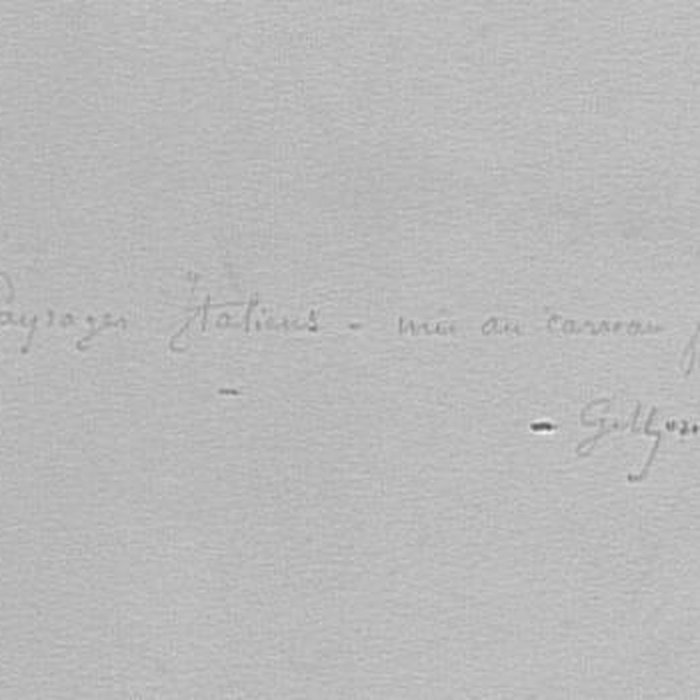 Paysages Italiens - mis au carreau